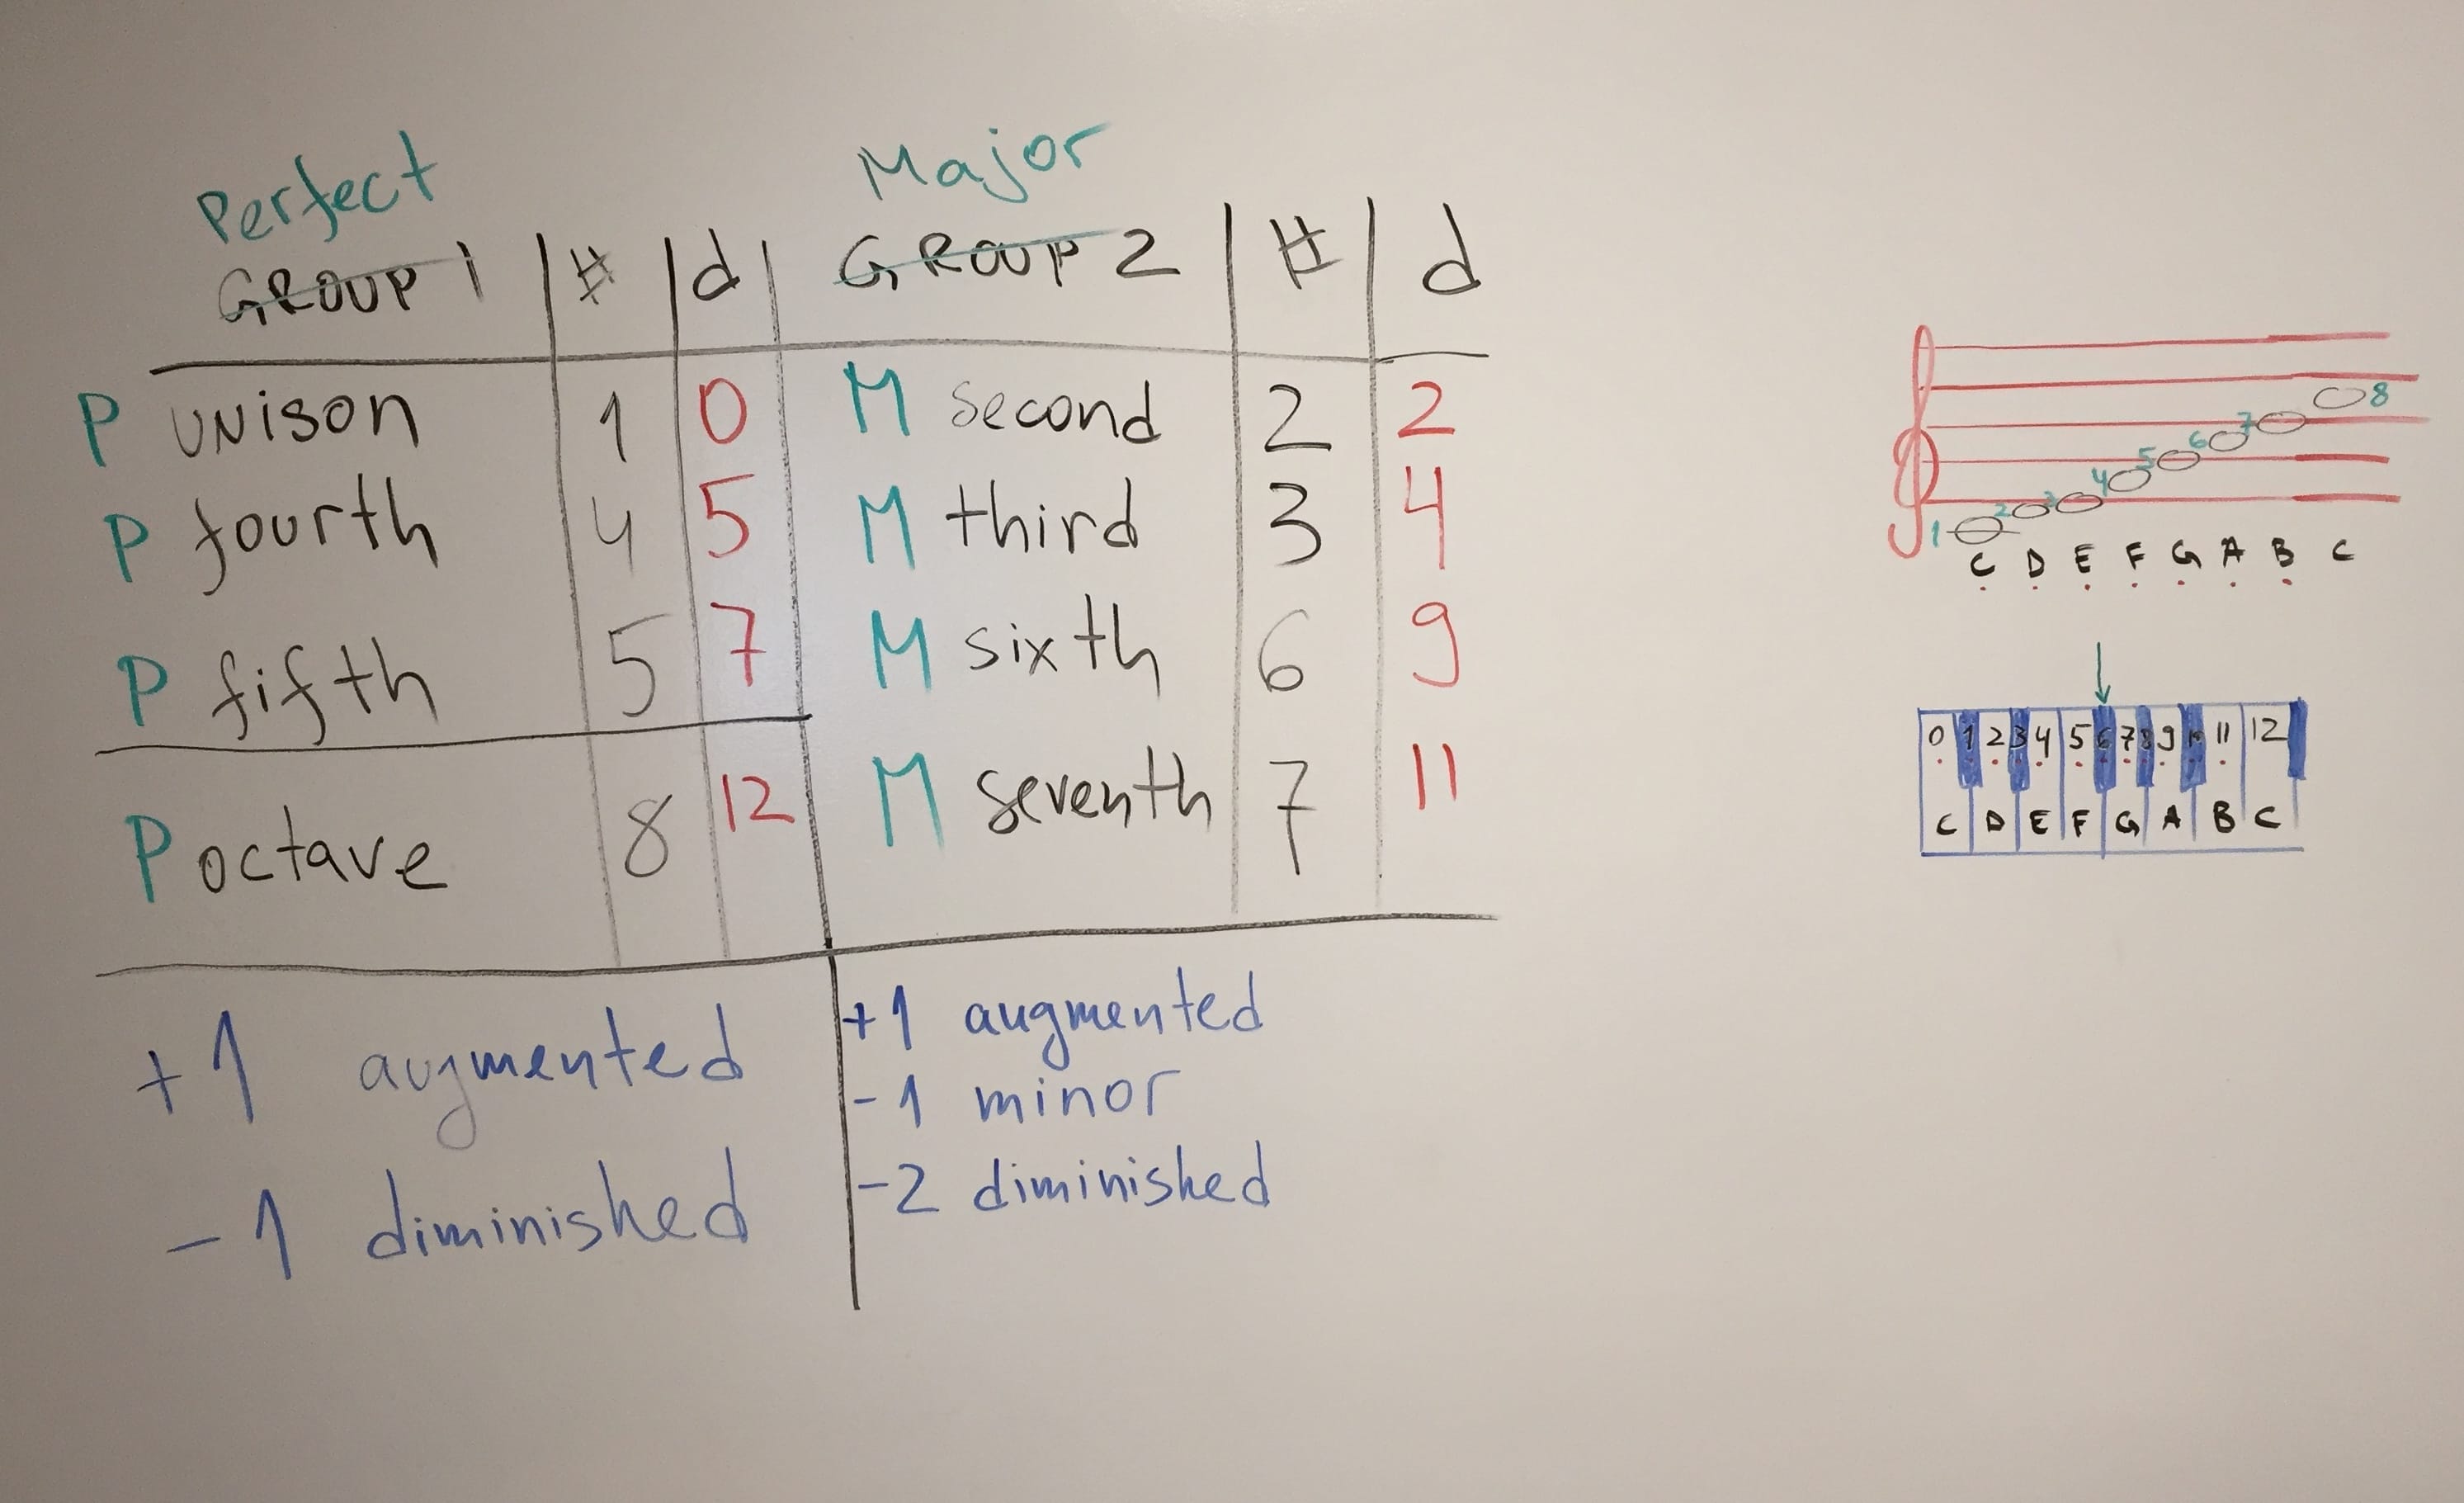 Perfect Major
GROUP 1 # d GROUP 2 # d
P UNison 1 0 M second 2 2
P fourth 4 5 M third 3 4
P fifth 5 7 M sixth 6 9
P octave 8 12 M seventh 7 11
+1 augmented
-1 diminished
+1 augmented
-1 minor
-2 diminished
1 2 3 4 5 6 7 8
C D E F G A B C
0 1 2 3 4 5 6 7 8 9 10 11 12
C D E F G A B C